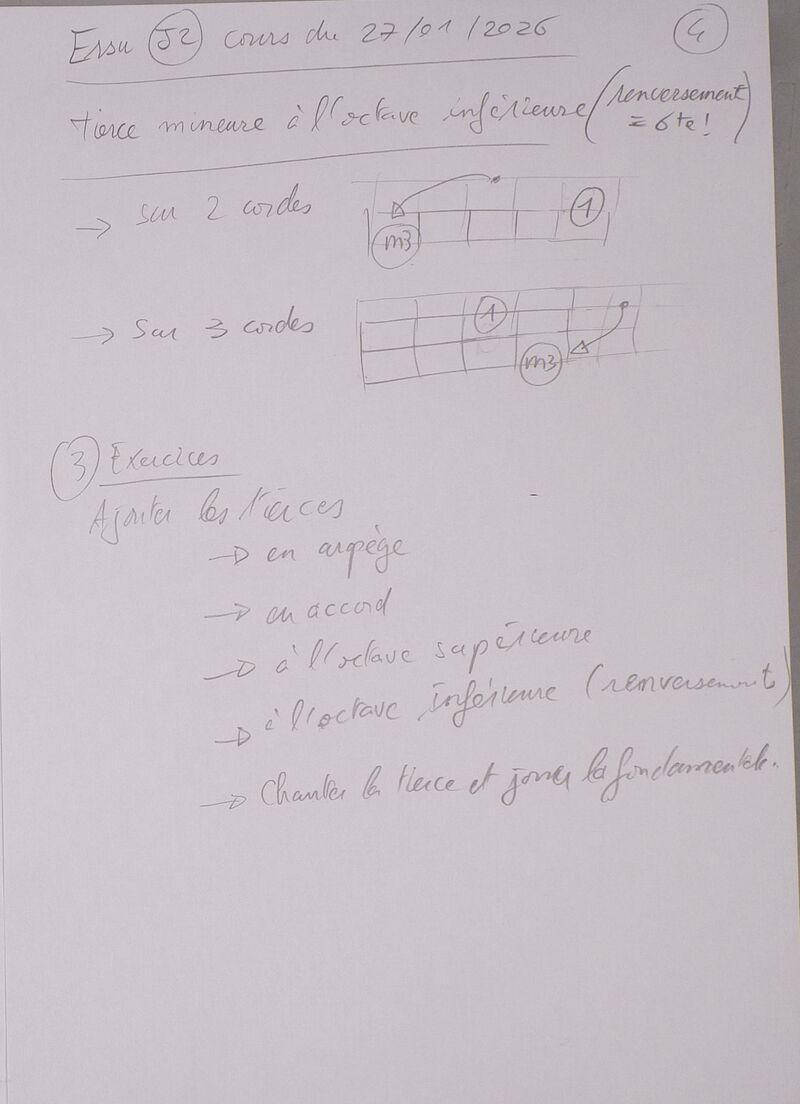 Essu J2 cours du 27/01/2026 4
tierce mineure à l'octave inférieure (renversement
= 6te!)
→ sur 2 cordes
1
m3
→ Sur 3 cordes
1
m3
3 Exercices
Ajouter les tierces
→ en arpège
→ en accord
→ à l'octave supérieure
→ à l'octave inférieure (renversements)
→ Chanter la tierce et jouer la fondamentale.